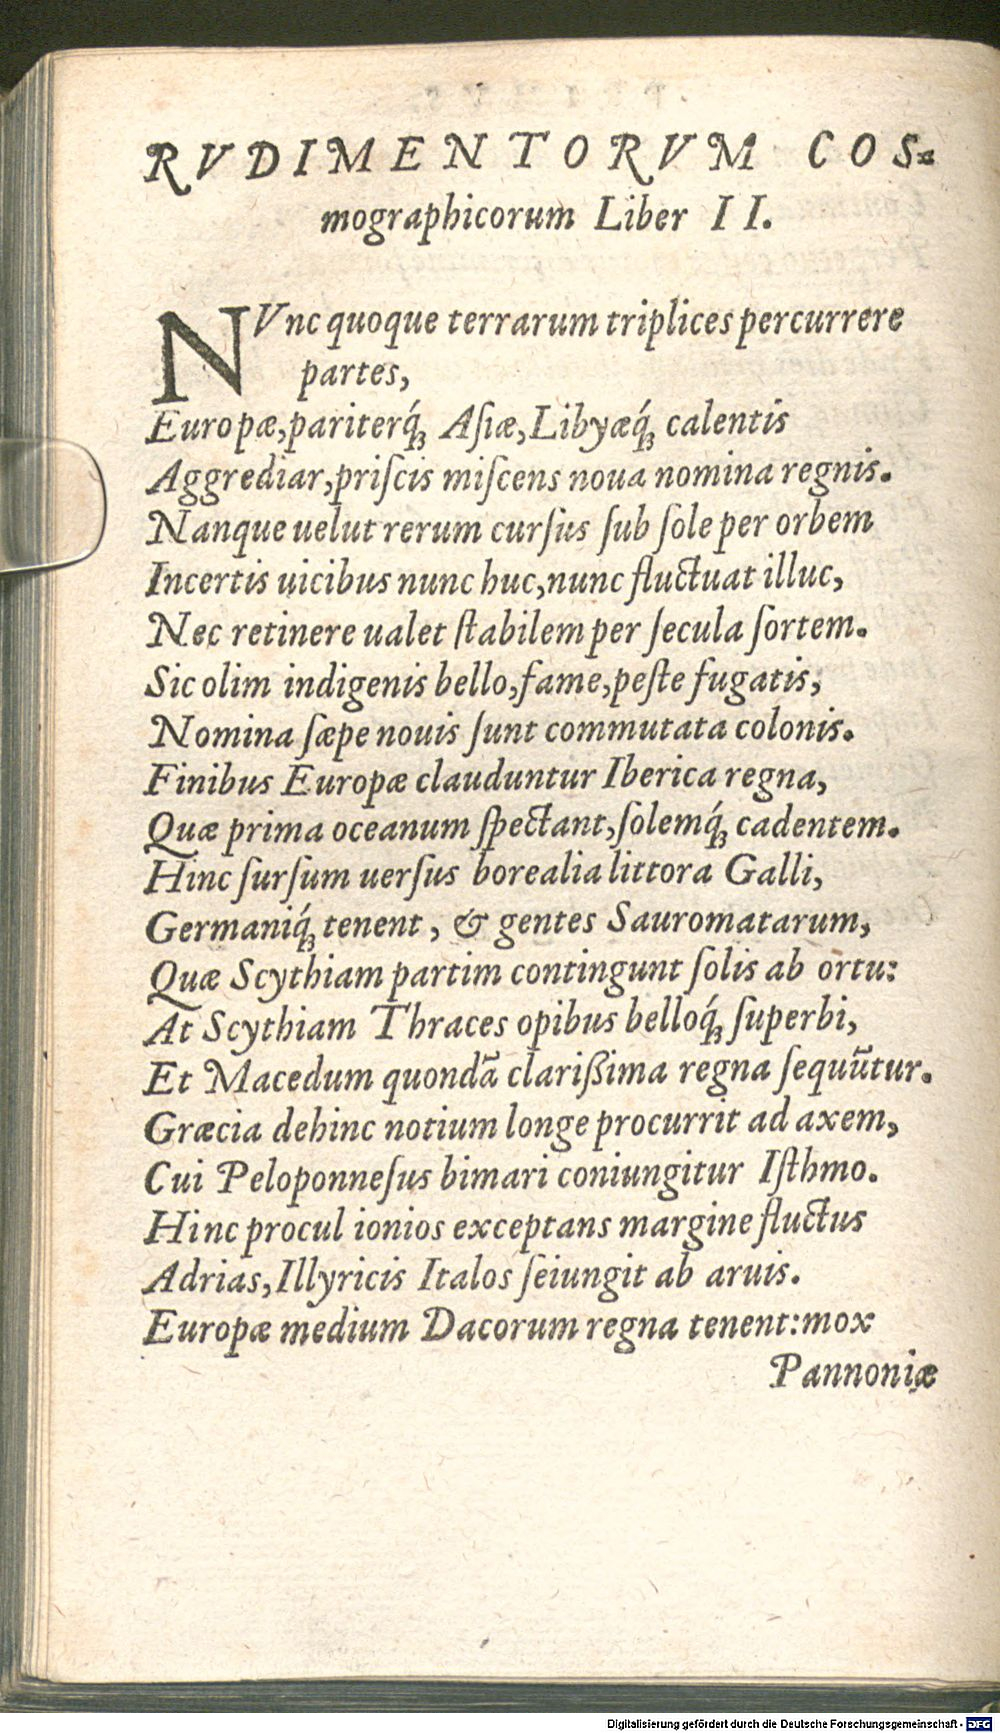 RVDIMENTORVM COS-
mographicorum Liber II.
NVnc quoque terrarum triplices percurrere
partes,
Europæ, pariterq́ꝫ Aſiæ, Libyæq́ꝫ calentis
Aggrediar, priſcis miſcens noua nomina regnis.
Nanque uelut rerum curſus ſub ſole per orbem
Incertis uicibus nunc huc, nunc fluctuat illuc,
Nec retinere ualet ſtabilem per ſecula ſortem.
Sic olim indigenis bello, fame, peſte fugatis,
Nomina ſæpe nouis ſunt commutata colonis.
Finibus Europæ clauduntur Iberica regna,
Quæ prima oceanum ſpectant, ſolemq́ꝫ cadentem.
Hinc ſurſum uerſus borealia littora Galli,
Germaniq́ꝫ tenent, & gentes Sauromatarum,
Quæ Scythiam partim contingunt ſolis ab ortu:
At Scythiam Thraces opibus belloq́ꝫ ſuperbi,
Et Macedum quondā clarißima regna ſequūtur.
Græcia dehinc notium longe procurrit ad axem,
Cui Peloponneſus bimari coniungitur Iſthmo.
Hinc procul ionios exceptans margine fluctus
Adrias, Illyricis Italos ſeiungit ab aruis.
Europæ medium Dacorum regna tenent: mox
Pannoniæ
Digitalisierung gefördert durch die Deutsche Forschungsgemeinschaft - DFG